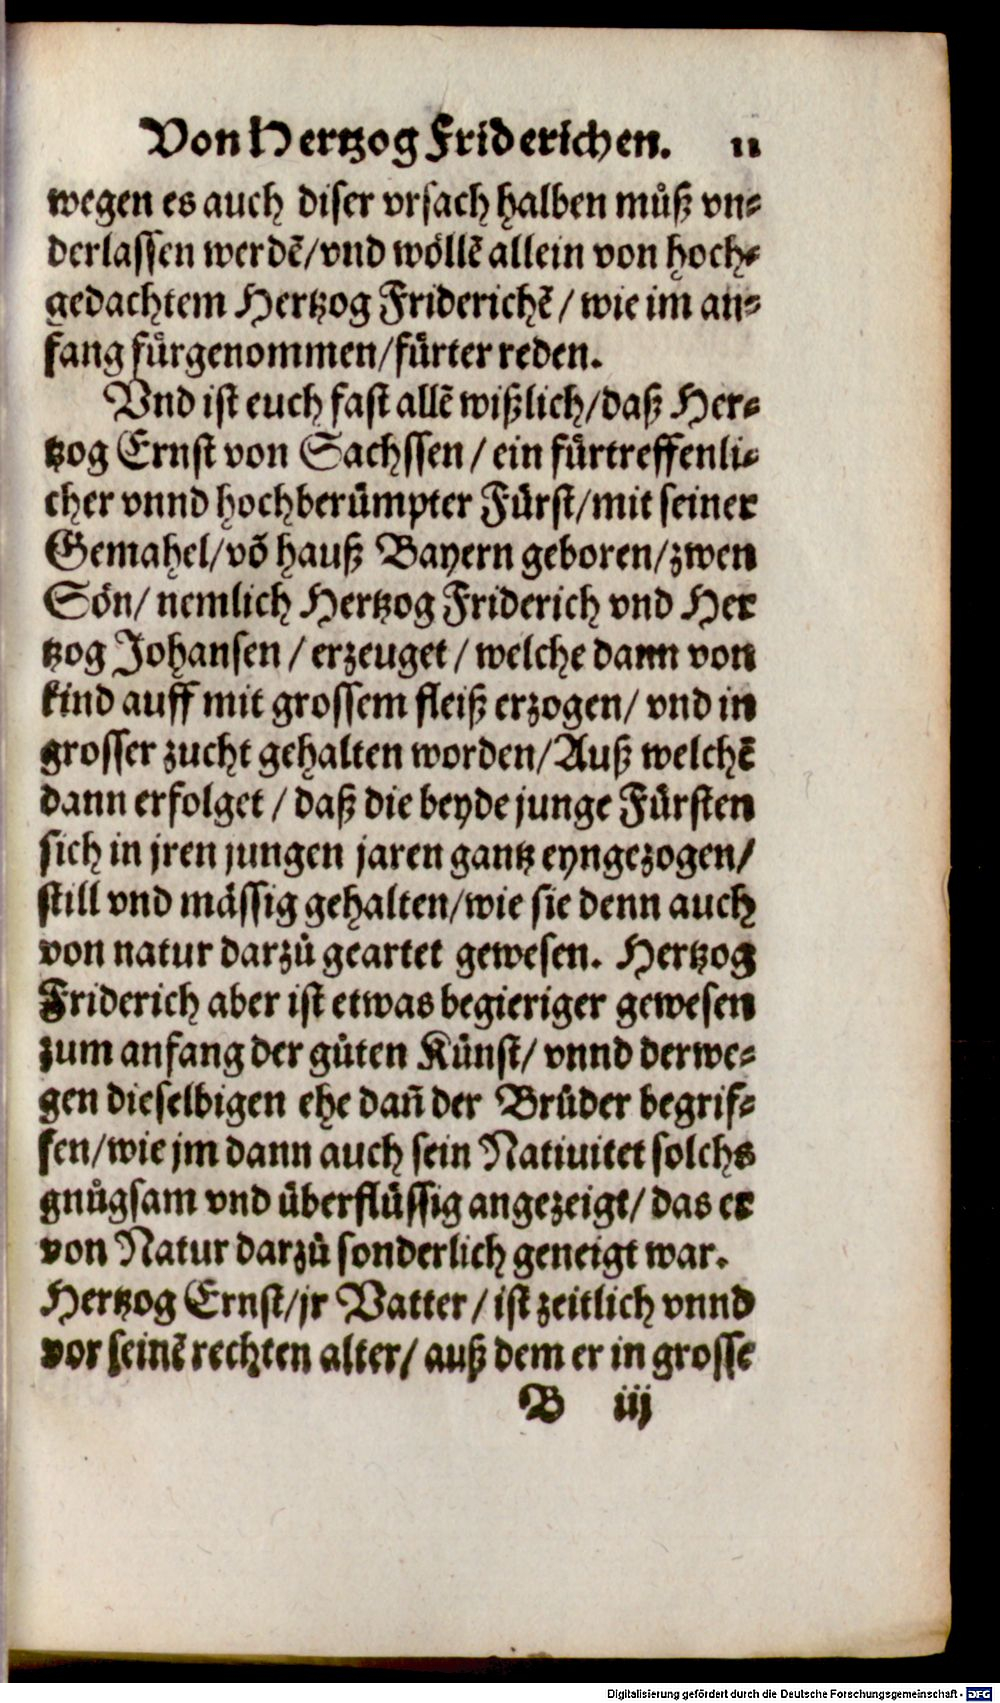 Von Hertzog Friderichen. 11
wegen es auch diser vrsach halben můß vn⸗
derlassen werdẽ/vnd wöllẽ allein von hoch⸗
gedachtem Hertzog Friderichẽ / wie im an⸗
fang fürgenommen/fürter reden.
Vnd ist euch fast allẽ wißlich/daß Her⸗
tzog Ernst von Sachssen / ein fürtreffenli⸗
cher vnnd hochberümpter Fürst/mit seiner
Gemahel/võ hauß Bayern geboren/zwen
Sön/ nemlich Hertzog Friderich vnd Her
tzog Johansen / erzeuget / welche dann von
kind auff mit grossem fleiß erzogen/ vnd in
grosser zucht gehalten worden/Auß welchẽ
dann erfolget / daß die beyde junge Fürsten
sich in jren jungen jaren gantz eyngezogen/
still vnd mässig gehalten/wie sie denn auch
von natur darzů geartet gewesen. Hertzog
Friderich aber ist etwas begieriger gewesen
zum anfang der gůten Künst/ vnnd derwe⸗
gen dieselbigen ehe dañ der Brüder begrif⸗
fen/wie jm dann auch sein Natiuitet solchs
gnůgsam vnd überflüssig angezeigt/ das er
von Natur darzů sonderlich geneigt war.
Hertzog Ernst/jr Vatter / ist zeitlich vnnd
vor seinẽ rechten alter/ auß dem er in grosse
B iij
Digitalisierung gefördert durch die Deutsche Forschungsgemeinschaft - DFG